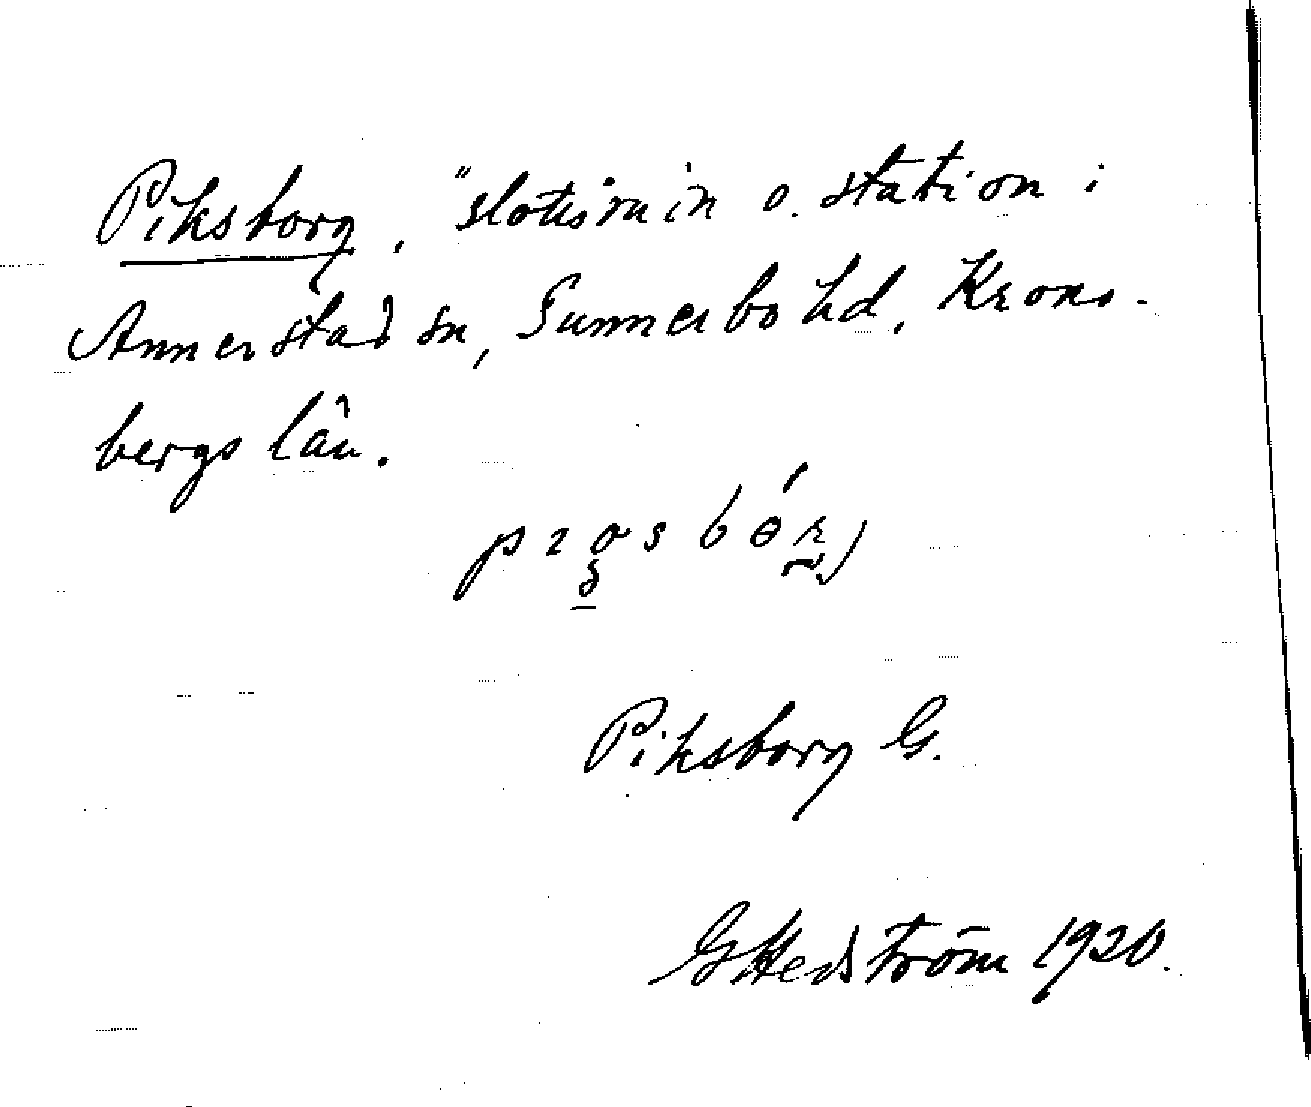 Piksborg, "slottsruin o. station i
Annerstad sn, Sunnerbo hd, Krono-
bergs län.
Piksborg G.
G Hedström 1920.